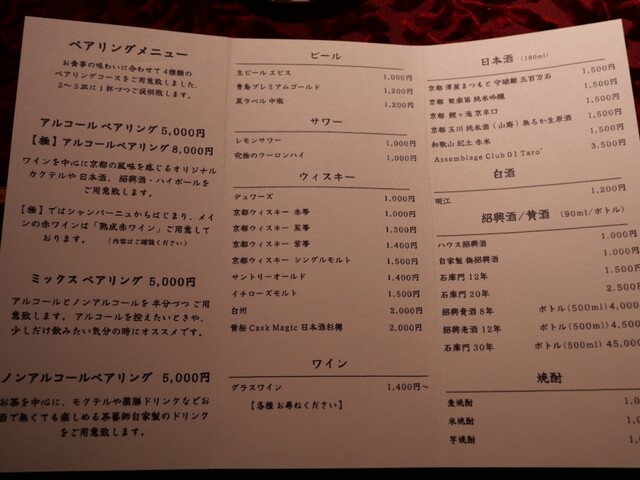 ペアリングメニュー
お食事の味わいに合わせて4種類の
ペアリングコースをご用意致しました。
2〜3皿に1杯づつご提供致します。
アルコール ペアリング 5,000円
【極】アルコールペアリング 8,000円
ワインを中心に京都の風味を感じるオリジナル
カクテルや日本酒、紹興酒・ハイボールを
ご用意致します。
【極】ではシャンパーニュからはじまり、メイ
ンの赤ワインは「熟成赤ワイン」ご用意して
おります。 (内容はご確認ください)
ミックス ペアリング 5,000円
アルコールとノンアルコールを 半分づつ ご用
意致します。アルコールを控えたいときや、
少しだけ飲みたい気分の時にオススメです。
ノンアルコールペアリング 5,000円
お茶を中心に、モクテルや薬膳ドリンクなどお
酒で無くても楽しめる茶藝師自家製のドリンク
をご用意致します。
ビール
生ビール エビス 1,000円
青島プレミアムゴールド 1,200円
黒ラベル 中瓶 1,200円
サワー
レモンサワー 1,000円
究極のウーロンハイ 1,000円
ウィスキー
デュワーズ 1,000円
京都ウィスキー 赤帯 1,000円
京都ウィスキー 黒帯 1,300円
京都ウィスキー 紫帯 1,400円
京都ウィスキー シングルモルト 1,500円
サントリーオールド 1,400円
イチローズモルト 1,500円
白州 2,000円
黄桜 Cask Magic 日本酒杉樽 2,000円
ワイン
グラスワイン 1,400円〜
【各種 お尋ねください】
日本酒 (180ml)
京都 澤屋まつもと 守破離 五百万石 1,500円
京都 聚楽第 純米吟醸 1,500円
京都 鯉ヶ滝 京辛口 1,500円
京都 玉川 純米酒(山廃) 無ろか生原酒 1,500円
和歌山 紀土 赤米 1,500円
Assemblage Club 01 Taro 3,500円
白酒
明江 1,200円
紹興酒/黄酒 (90ml/ボトル)
ハウス紹興酒 1.000円
自家製 梅紹興酒 1.000円
石庫門 12年 1.500円
石庫門 20年 2.500円
紹興貴酒 8年 ボトル(500ml) 4,000
紹興老酒 12年 ボトル(500ml) 4,500
石庫門 30年 ボトル(500ml) 45,000
焼酎
麦焼酎 1,0
米焼酎 1,0
芋焼酎 1,